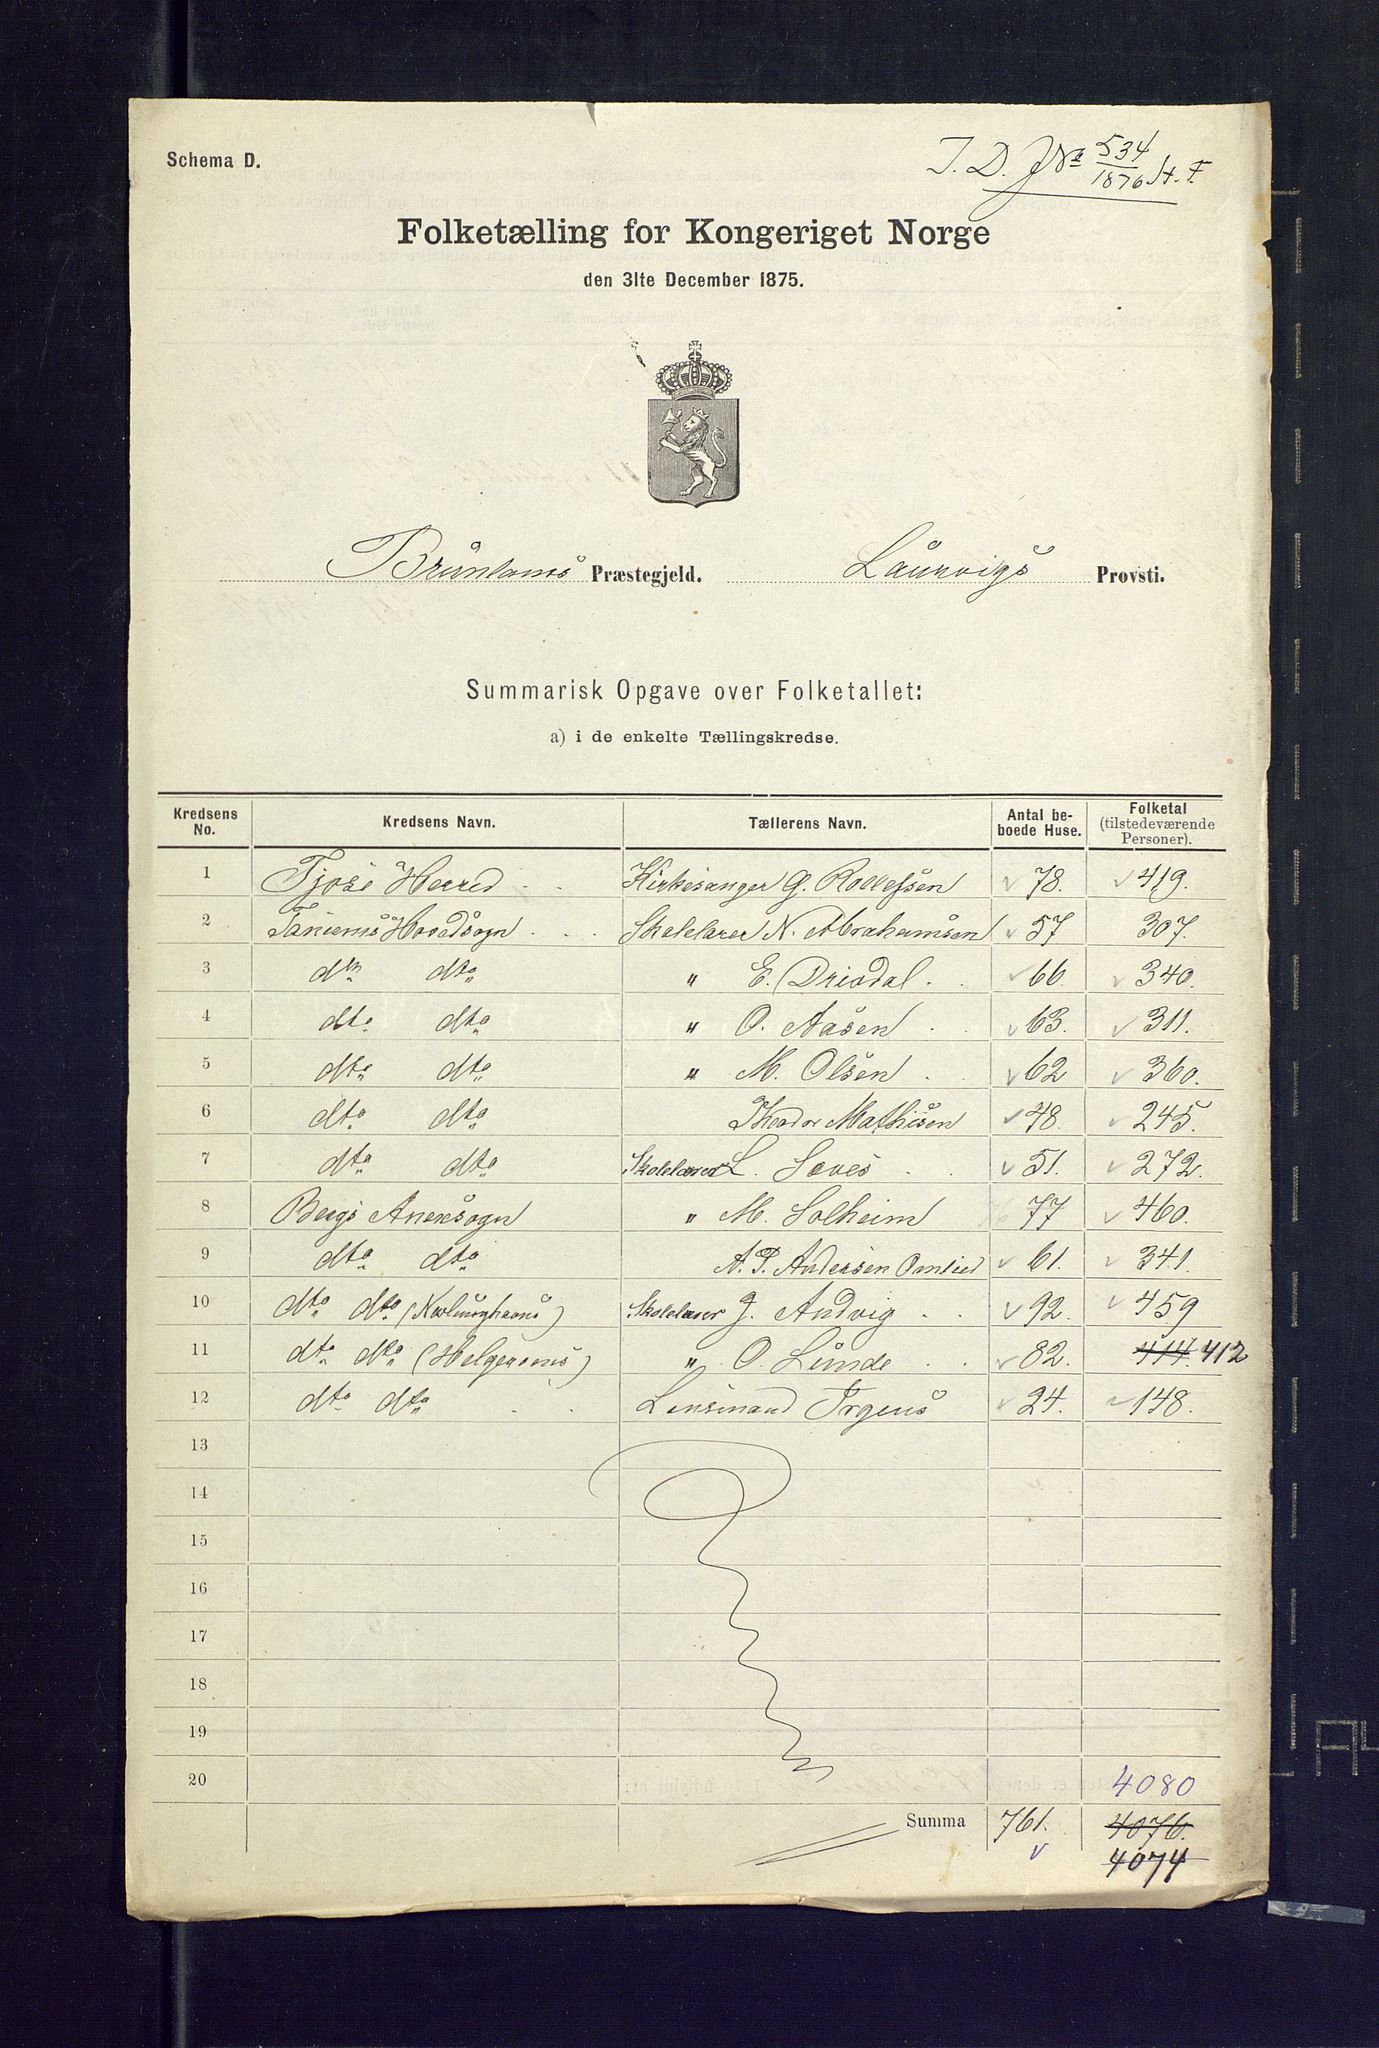 Schema D.
J. D. J No 534/1876 St. F.
Folketælling for Kongeriget Norge
den 31te December 1875.
Brunlanæs Præstegjeld. Laurvigs Provsti.
Summarisk Opgave over Folketallet:
a) i de enkelte Tællingskredse.
Kredsens No. Kredsens Navn. Tællerens Navn. Antal beboede Huse. Folketal (tilstedeværende Personer).
1 Tjøse Herred Kirkesanger G. Rollefsen 78. 419.
2 Tanums Hovedsogn Skolelærer N. Abrahamsen 57 307.
3 dto dto " E. Drivdal 66. 340.
4 dto dto " O. Aasen 63. 311.
5 dto dto " M. Olsen 62 360.
6 dto dto Theodor Mathisen 48. 245.
7 dto dto Skolelærer L. 51. 272.
8 Bergs Anexsogn " M. Solheim 77 460.
9 dto dto A. P. Andersen Omlied 61. 341.
10 dto dto (Nevlunghavns) Skolelærer J. Andvig 92. 459
11 dto dto (Helgeroens) " O. Lunde 82. 414. 412
12 dto dto Lensmand Irgens 24. 148.
13
14
15
16
17
18
19
20 4080
Summa 761. 4076.
4074